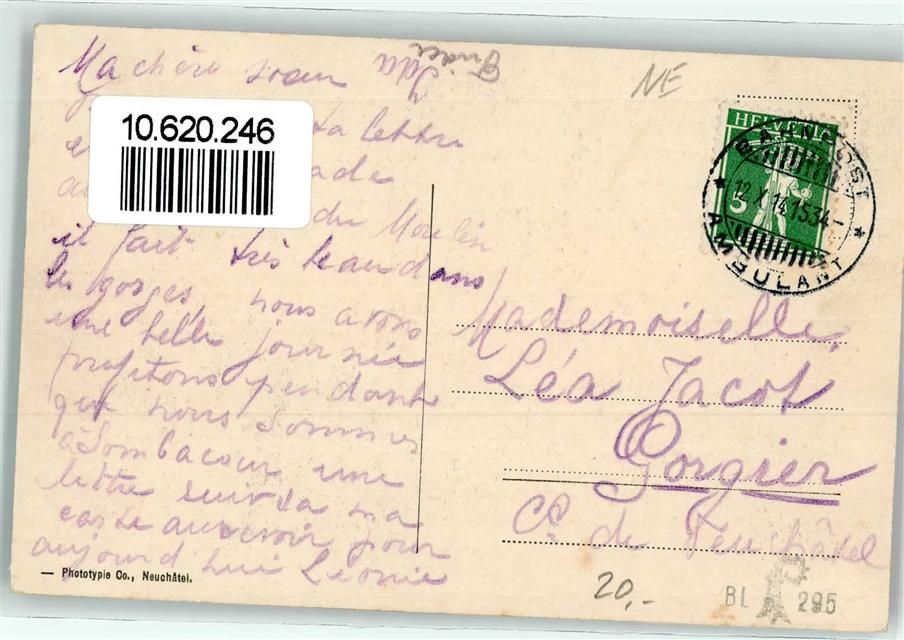 Ma chère sœur Ida
Frieda
NE
10.620.246
ta lettre
du Moulin
il fait très beau dans
les gorges, nous avons
une belle journée
profitons pendant
que nous sommes
à Sombacour une
lettre suivra ma
carte au revoir pour
aujourd'hui Léonie
HELVETIA
5
BAHNPOST
12 X 14 1534
AMBULANT
Mademoiselle
Léa Jacot
Gorgier
Ct. de Neuchâtel
— Phototypie Co., Neuchâtel.
20,-
BL 295